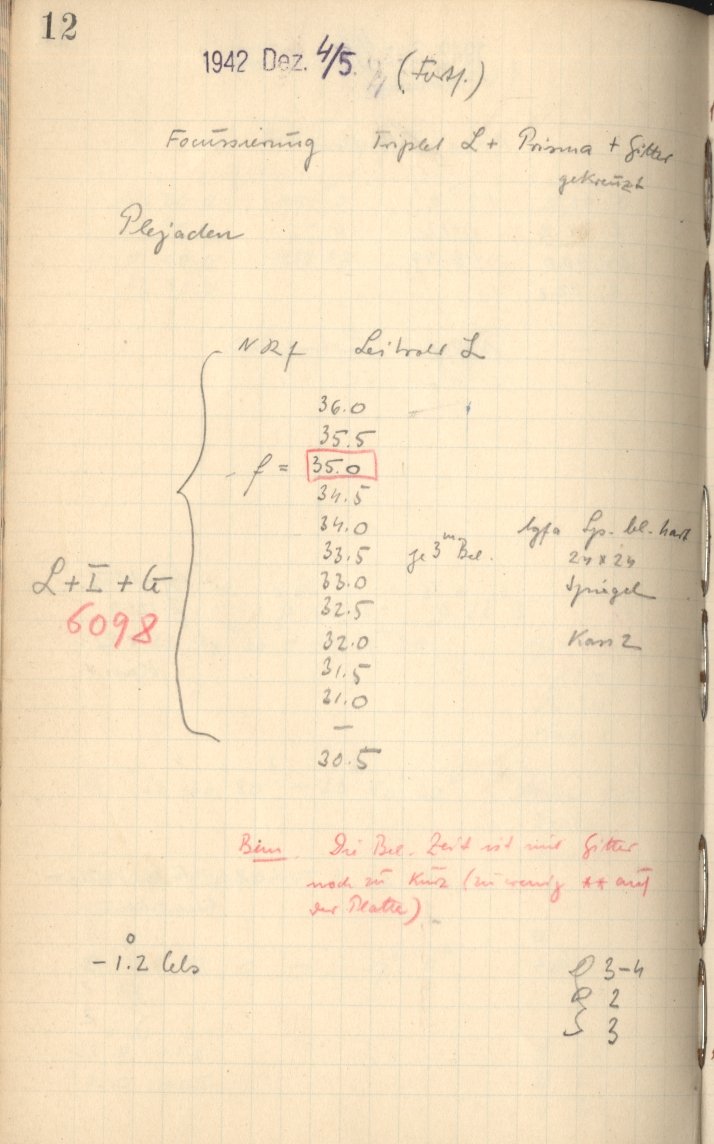 12
1942 Dez. 4/5. (Forts.)
Focussierung Triplet L + Prisma + Gitter
gekreuzt
Plejaden
Leitrohr L
36.0
35.5
f = 35.0
34.5
34.0
33.5 je 3m Bel.
33.0
32.5
32.0
31.5
31.0
–
30.5
Agfa Sp. bl. hart
24 x 24
Spiegel
Kass 2
L + I + G
6098
Bem. Die Bel. Zeit ist mit Gitter
noch zu kurz (zu wenig ** auf
der Platte)
– 1.2° Cels
3–4
2
3